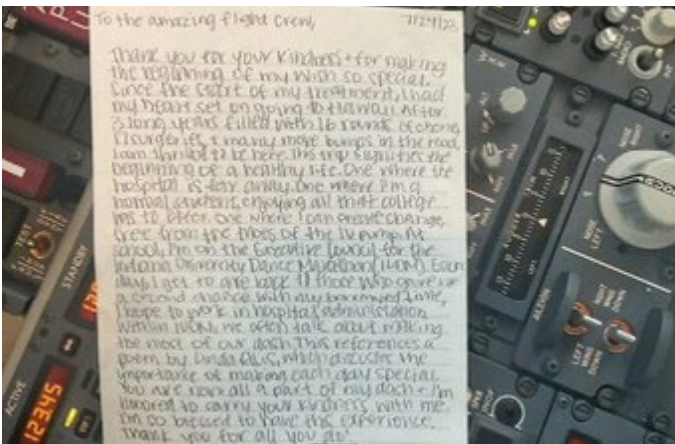 To the amazing flight crew, 7/24/23
Thank you for your kindness + for making
the beginning of my wish so special.
Since the start of my treatment, I had
my heart set on going to Hawaii. After
3 long years filled with 16 rounds of chemo,
17 surgeries, & many more bumps in the road,
I am thrilled to be here. This trip signifies the
beginning of a healthy life. One where the
hospital is far away. One where I'm a
normal student, enjoying all that college
has to offer. One where I can create change,
free from the tubes of the IV pump. At
school, I'm on the Executive Council for the
Indiana University Dance Marathon (IUDM). Each
day, I get to give back to those who gave me
a second chance. With my borrowed time,
I hope to work in hospital administration.
Within IUDM, we often talk about making
the most of our dash. This references a
poem by Linda Ellis, which discusses the
importance of making each day special.
You are now all a part of my dash + I'm
honored to carry your kindness with me.
I'm so blessed to have this experience.
Thank you for all you do!
TEST
STANDBY
ACTIVE
12345
NOSE
LEFT
AILERON
LEFT
WING
DOWN
RIGHT
WING
DOWN